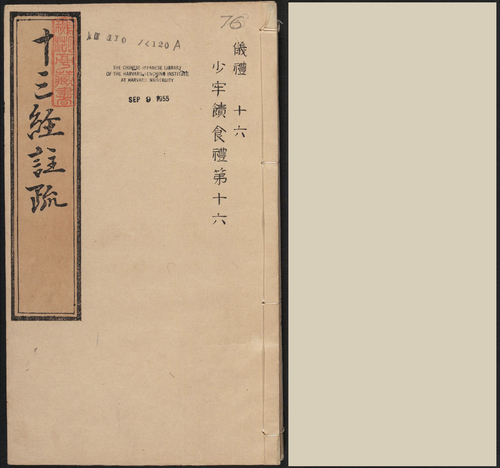 76
儀禮 十六
少牢饋食禮第十六
THE CHINESE-JAPANESE LIBRARY
OF THE HARVARD-YENCHING INSTITUTE
AT HARVARD UNIVERSITY
SEP 9 1955
十三經註疏